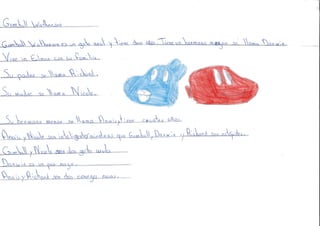 Gumball Watterson
Gumball Watterson es un gato azul y tiene doce años. Tiene un hermano mayor se llama Darwin.
Vive in Elmore con su familia.
Su padre se llama Richard.
Su madre se llama Nicole.
Su hermana menor se llama Anais, tiene cuatro años.
Anais y Nicole son inteligentes mientras que Gumball, Darwin y Richard son estúpidos.
Gumball y Nicole son dos gato azules
Darwin es un pez naranja.
Anais y Richard son dos conejo rosas.